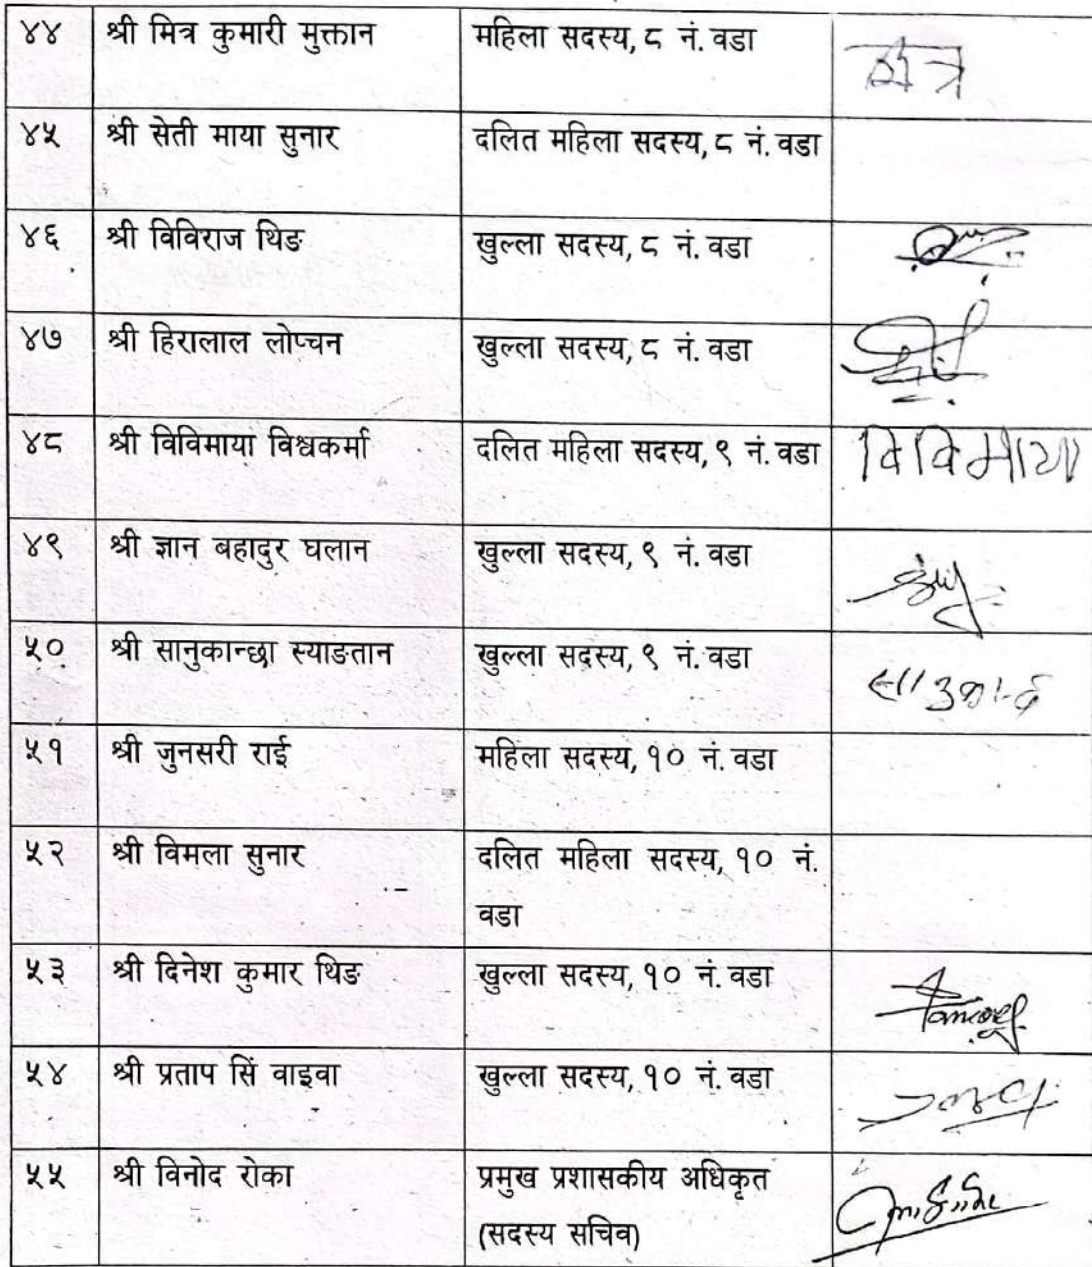 ४४ श्री मित्र कुमारी मुक्तान महिला सदस्य, ८ नं. वडा
४५ श्री सेती माया सुनार दलित महिला सदस्य, ८ नं. वडा
४६ श्री विविराज थिङ खुल्ला सदस्य, ८ नं. वडा
४७ श्री हिरालाल लोप्चन खुल्ला सदस्य, ८ नं. वडा
४८ श्री विविमाया विश्वकर्मा दलित महिला सदस्य, ९ नं. वडा विविमाया
४९ श्री ज्ञान बहादुर घलान खुल्ला सदस्य, ९ नं. वडा
५० श्री सानुकान्छा स्याङतान खुल्ला सदस्य, ९ नं. वडा
५१ श्री जुनसरी राई महिला सदस्य, १० नं. वडा
५२ श्री विमला सुनार दलित महिला सदस्य, १० नं.
वडा
५३ श्री दिनेश कुमार थिङ खुल्ला सदस्य, १० नं. वडा
५४ श्री प्रताप सिं वाइवा खुल्ला सदस्य, १० नं. वडा
५५ श्री विनोद रोका प्रमुख प्रशासकीय अधिकृत
(सदस्य सचिव)